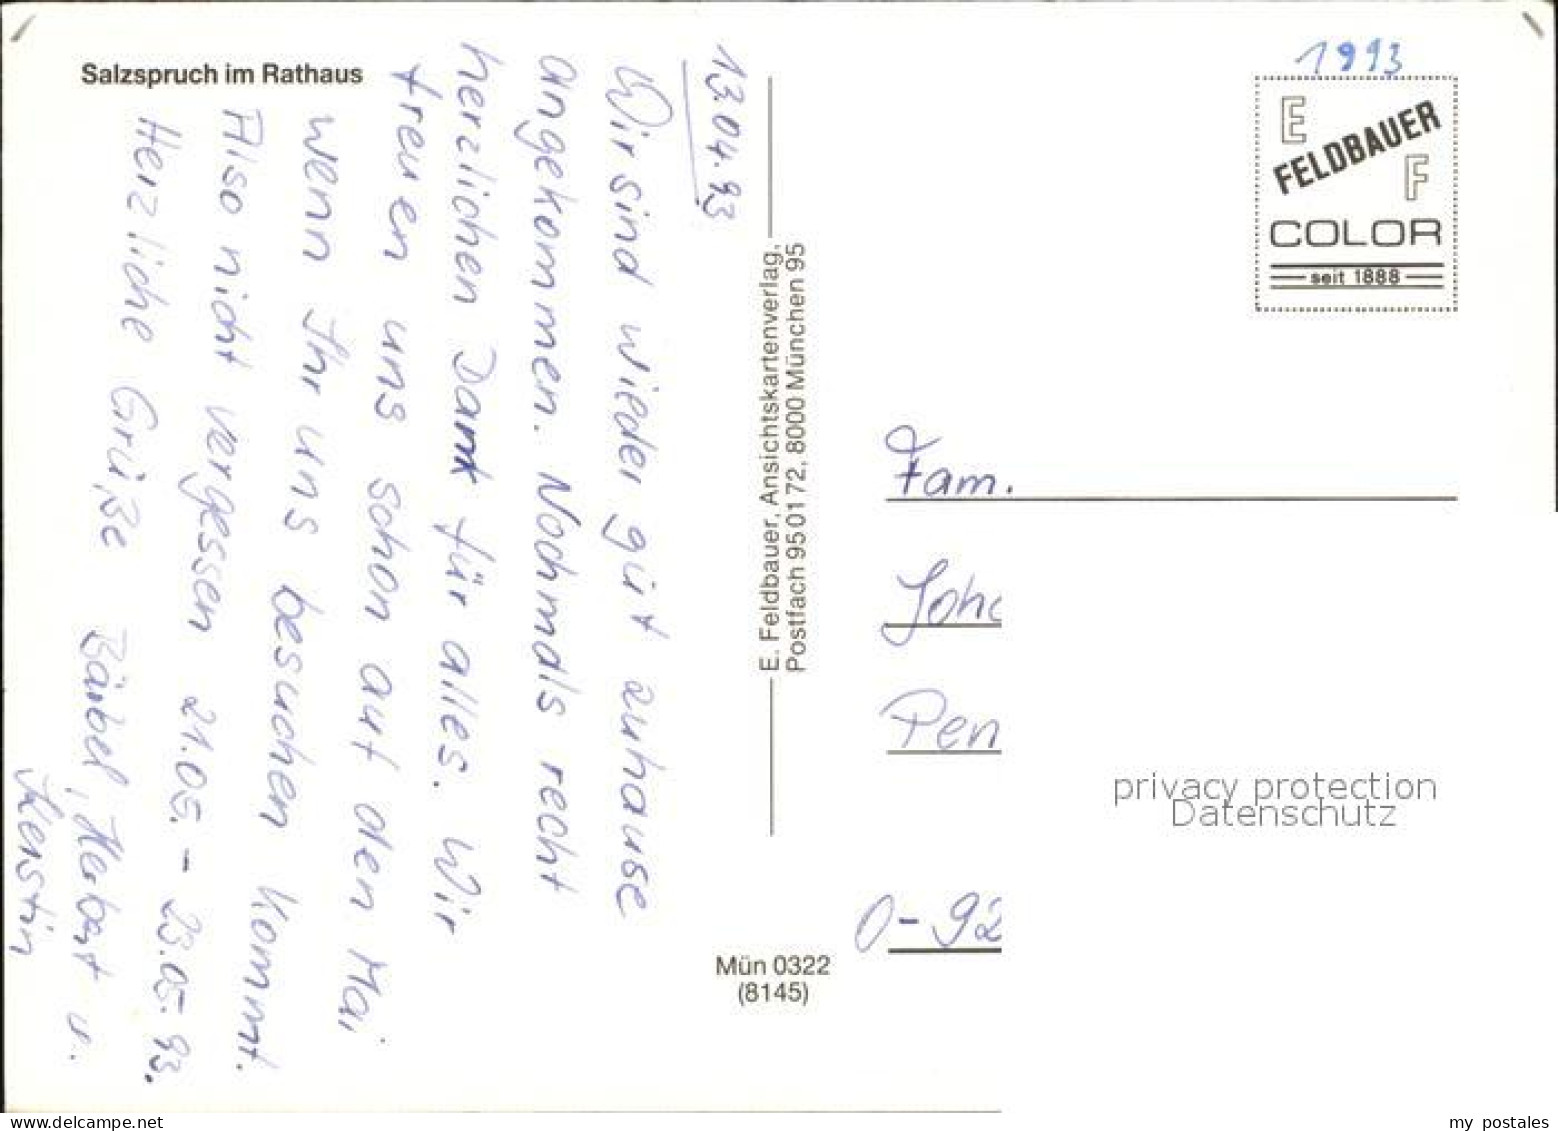 Salzspruch im Rathaus
13.04.93
Wir sind wieder gut zuhause
angekommen. Nochmals recht
herzlichen Dank für alles. Wir
freuen uns schon auf den Mai
wenn Ihr uns besuchen kommt.
Also nicht vergessen 21.05. - 23.05.93.
Herzliche Grüße Bärbel, Herbert u.
Kerstin
E. Feldbauer, Ansichtskartenverlag,
Postfach 950172, 8000 München 95
Mün 0322
(8145)
1993
E
FELDBAUER
F
COLOR
seit 1888
Fam.
Joha
Pen
O-92
privacy protection
Datenschutz
https://www.delcampe.net/de/sammlerobjekte/store/ansichtskartenversand
my postales